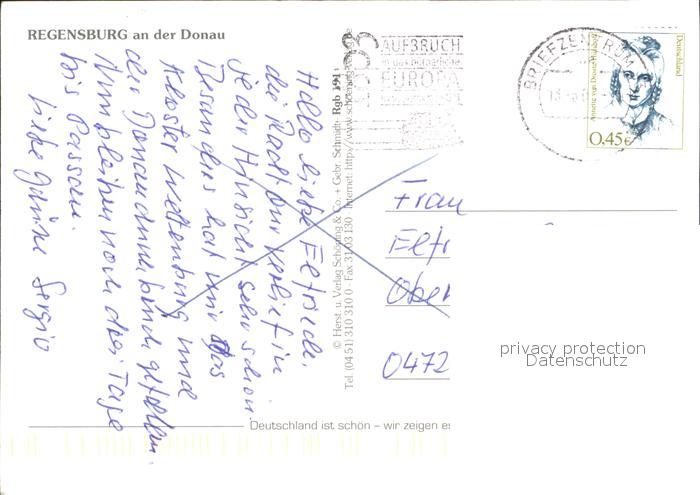 REGENSBURG an der Donau
Hallo liebe Elfriede,
die Radtour verlief in
jeder Hinsicht sehr schön.
Besonders hat mir das
Kloster Weltenburg und
der Donaudurchbruch gefallen.
Nun bleiben noch drei Tage
bis Passau.
Liebe Grüße Sergio
© Herst. u. Verlag Schöning & Co. + Gebr. Schmidt · Rgb
Tel. (04 51) 310 310 0 · Fax 31 03 130 Internet: http://www.schoening
AUFBRUCH
EUROPA
BRIEFZENTRUM
Deutschland
0,45€
Frau
Elfr
Ober
0472
privacy protection
Datenschutz
Deutschland ist schön – wir zeigen es